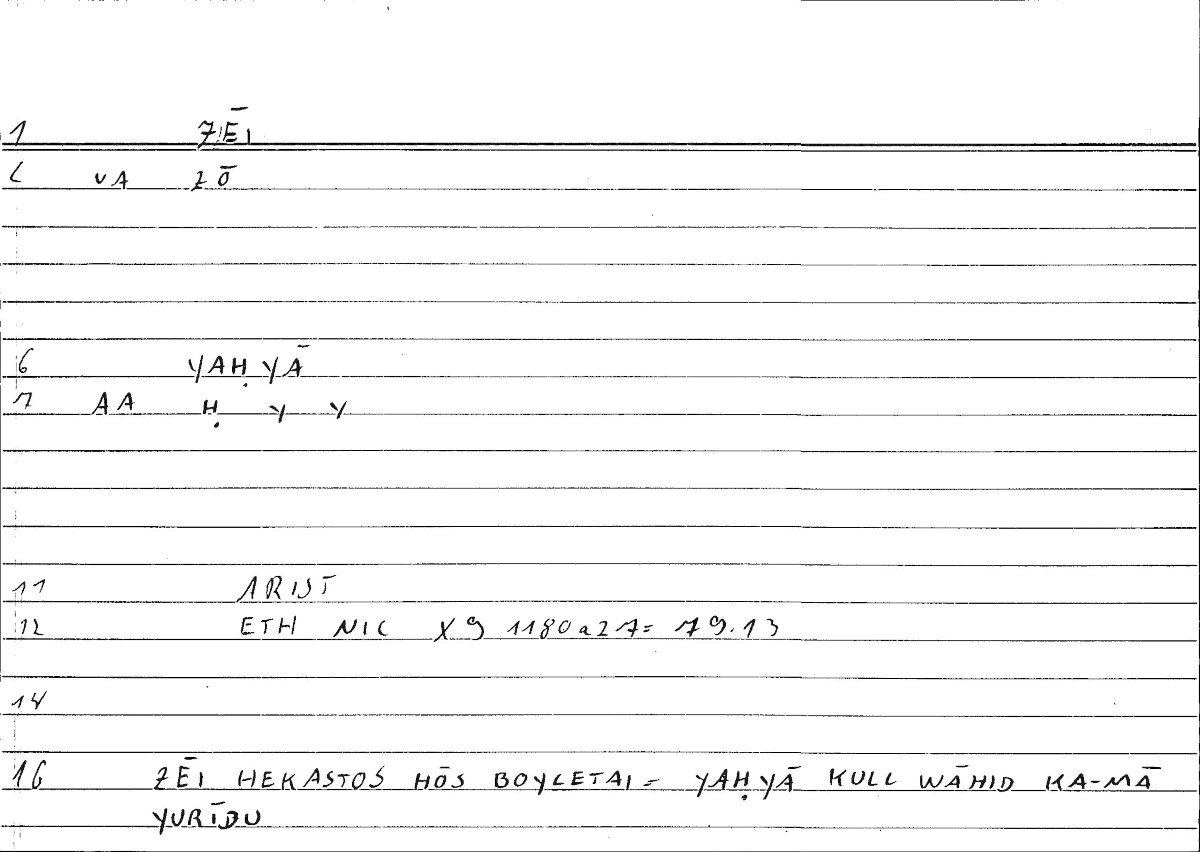 1 ZĒI
2 VA ZŌ
6 YAḤYĀ
7 AA Ḥ Y Y
11 ARIST
12 ETH NIC X 9 1180a27= 79.13
14
16 ZĒI HEKASTOS HŌS BOYLETAI = YAḤYĀ KULL WĀHID KA-MĀ
YURĪDU